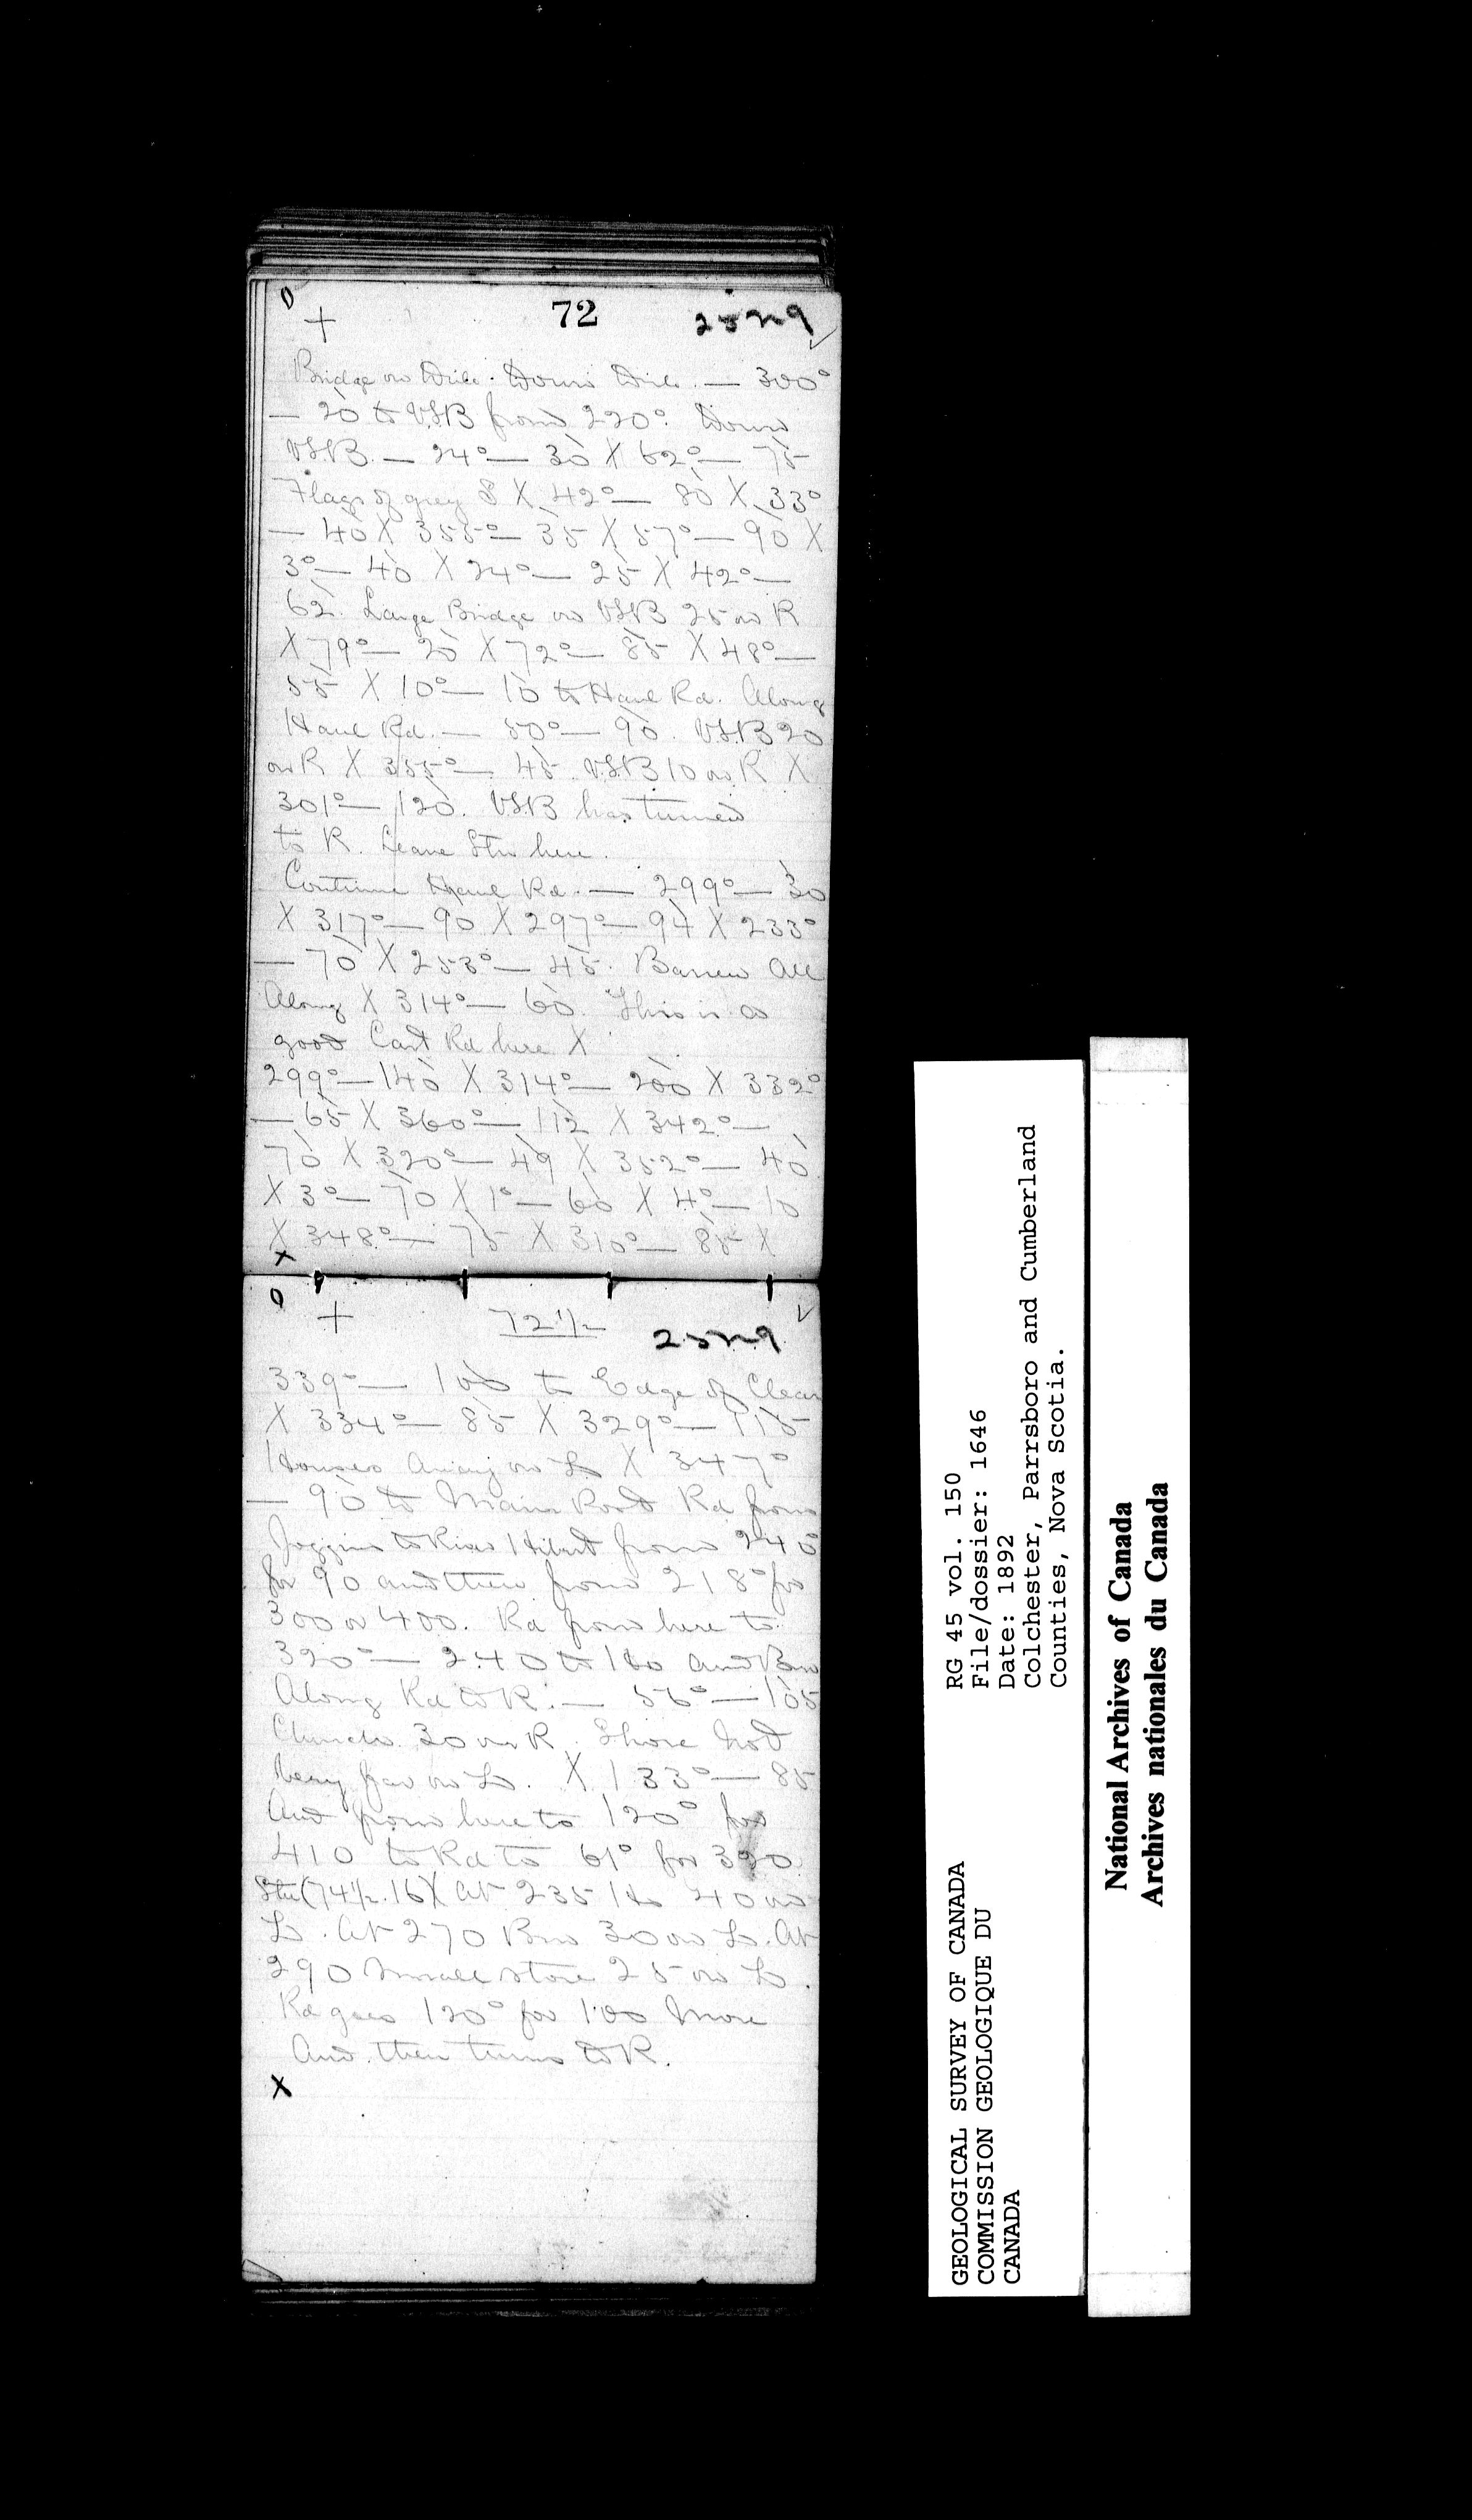 72
Bridge on Dile. Down Dile. — 300°
— 20 to VSB from 220°. Down
VSB. — 24° — 30 X 62° — 75
Flags of grey S X 42° — 80 X 33°
— 40 X 355° — 35 X 57° — 90 X
3° — 40 X 24° — 25 X 42° —
62. Large Bridge on VSB 25 on R
X 79° — 20 X 72° — 85 X 48° —
55 X 10° — 10 to Haul Rd. Along
Haul Rd. — 50° — 90. VSB 20
on R X 355° — 45. VSB 10 on R X
301° — 120. VSB has turned
to R. Leave Stn here.
Continue Haul Rd. — 299° — 30
X 317° — 90 X 297° — 94 X 233°
— 70 X 253° — 45. Barren All
Along X 314° — 60. This is a
good Cart Rd here X
299° — 140 X 314° — 200 X 332°
— 65 X 360° — 112 X 342° —
70 X 320° — 49 X 352° — 40
X 3° — 70 X 1° — 60 X 4° — 10
X 348° — 75 X 310° — 85 X
72 1/2
339° — 100 to Edge of Clear
X 334° — 85 X 329° — 115
Houses Away on L X 347°
— 90 to Main Post Rd from
Joggins to River Hibert from 240°
for 90 and then from 218° for
300 or 400. Rd from here to
320° — 240 to Ho and Brn
Along Rd to R. — 56° — 105
Church 30 on R. Shore Not
Very far on L. X 133° — 85
And from here to 120° for
410 to Rd to 61° for 320
Stn (74 1/2. 16) X At 235 Ho 40 on
L. At 270 Brn 30 on L. At
290 Small store 25 on L.
Rd goes 120° for 100 More
And then turns to R.
GEOLOGICAL SURVEY OF CANADA
COMMISSION GEOLOGIQUE DU
CANADA
RG 45 vol. 150
File/dossier: 1646
Date: 1892
Colchester, Parrsboro and Cumberland
Counties, Nova Scotia.
National Archives of Canada
Archives nationales du Canada